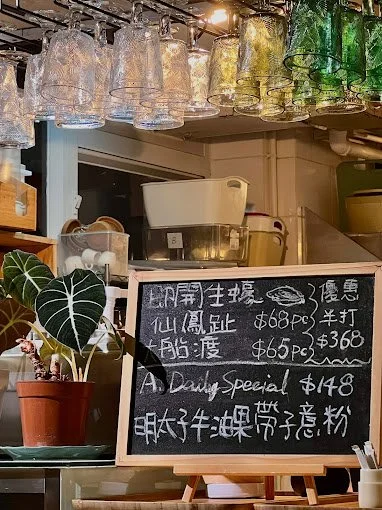 即開生蠔 優惠
仙鳳趾 $68pc 半打
大船渡 $65pc $368
A. Daily Special $148
明太子牛油果帶子意粉